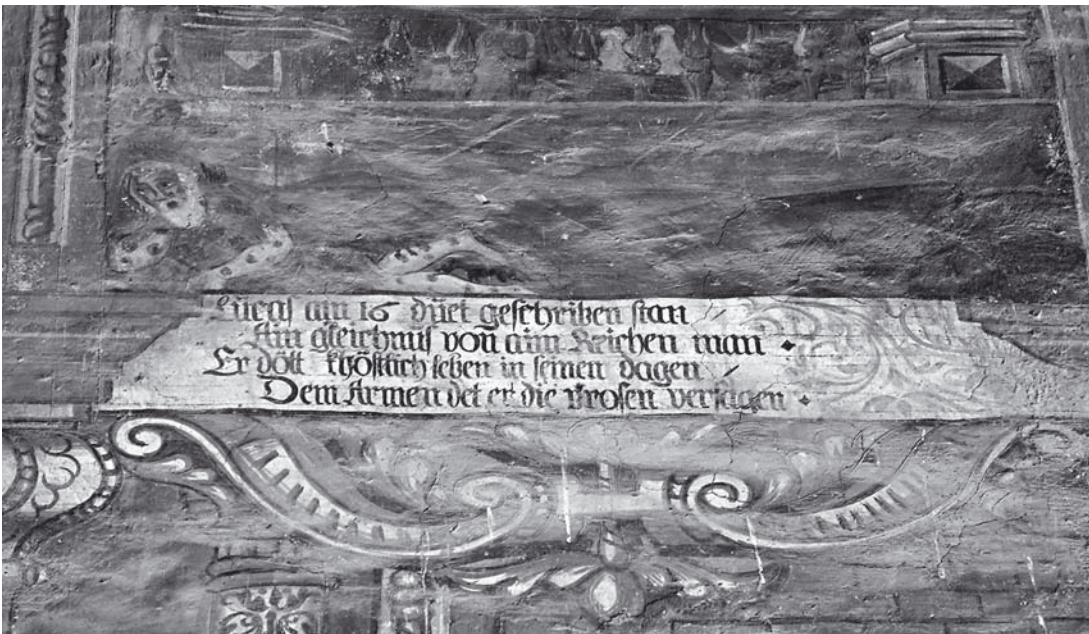 Lucas am 16 düet geschriben stan
Ain gleichnus von aim Reichen man
Er dött khöstlich leben in seinen dagen
Dem Armen det er die Brosen versagen